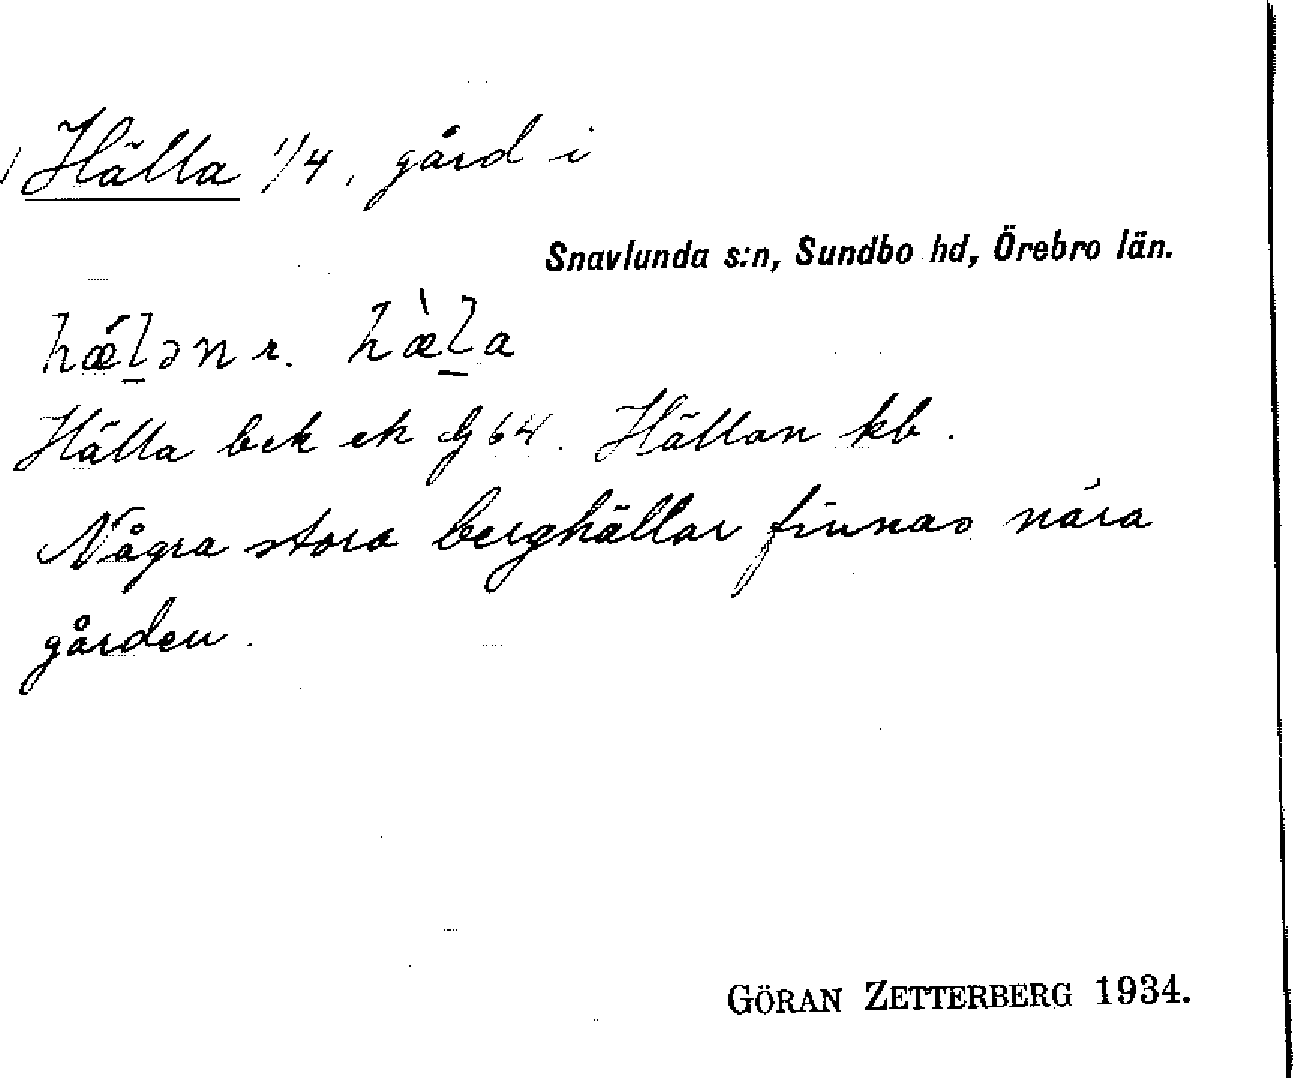 Hälla 1/4, gård i
Snavlunda s:n, Sundbo hd, Örebro län.
hǽl̲ən r. hæ̀l̲a
Hälla bek ek G 64. Hällan kb.
Några stora berghällar finnas nära
gården.
GÖRAN ZETTERBERG 1934.